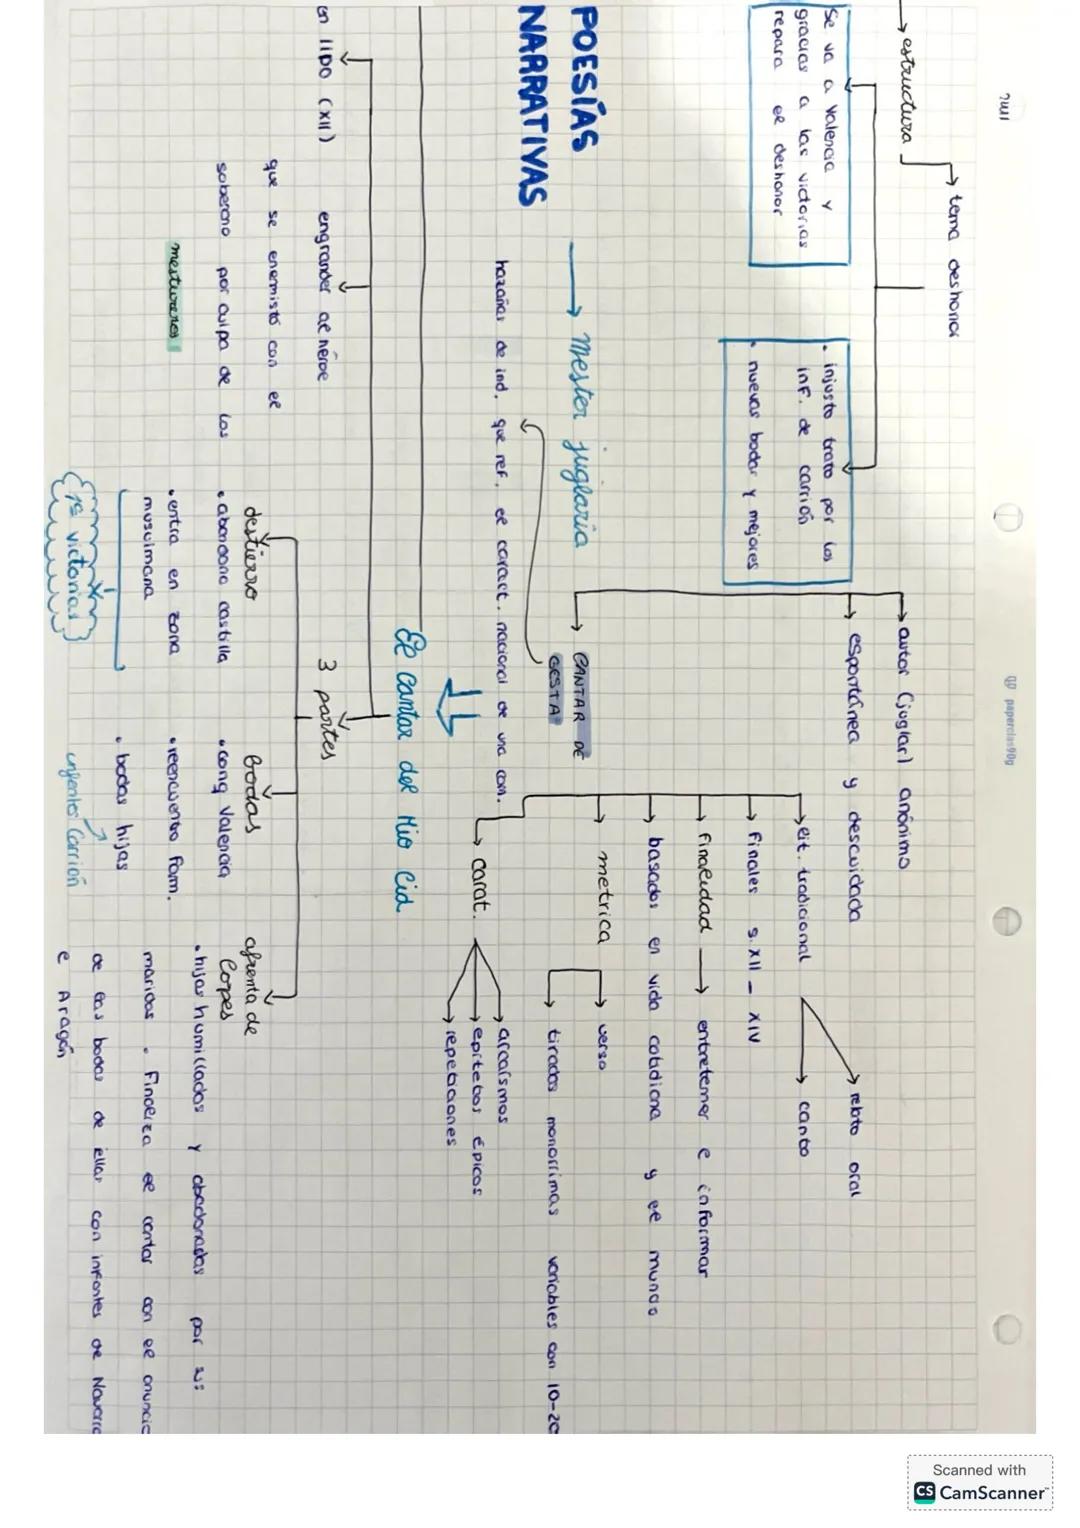 autor (juglar) anónimo
espontánea y descuidada
tema deshonor
estructura
Se va a Valencia y
gracias a las victorias
repara el deshonor
• injusto trato por los
inf. de carrión
• nuevas bodas y mejores
POESÍAS
NARRATIVAS
Mester juglaria
CANTAR DE
GESTA
hazañas de ind. que ref. el caract. nacional de una com.
eit. tradicional
relato oral
canto
finales s. XII - XIV
finalidad → entretener e informar
basados en vida cotidiana y el mundo
metrica
verso
tiradas monorrimas variables con 10-20
carat.
arcaísmos
epítetos épicos
repeticiones
El cantar del Mio Cid
en 1100 (XII)
engrander al héroe
que se enemistó con el
soberano por culpa de los
mestureros
3 partes
destierro
• abandona castilla
• entra en zona
musulmana
1ª victorias
bodas
• conq Valencia
• reencuentro fam.
• bodas hijas
infantes Carrión
afrenta de
Corpes
• hijas humilladas y abadonadas por sus
maridos. Finaliza el cantar con el anuncio
de las bodas de ellas con infantes de Navarra
e Aragón
paperclas90g
Scanned with
CS CamScanner